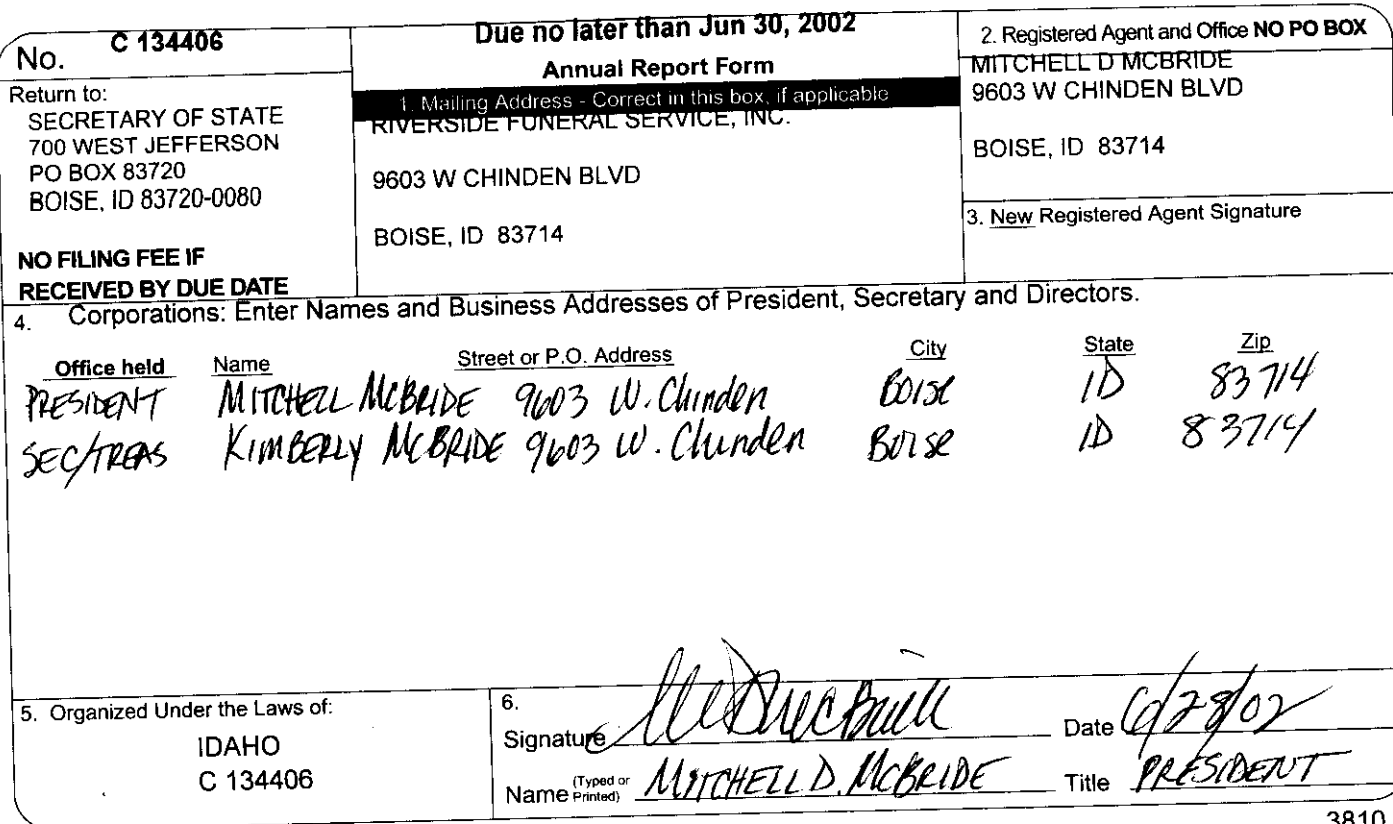 No. C 134406
Return to:
SECRETARY OF STATE
700 WEST JEFFERSON
PO BOX 83720
BOISE, ID 83720-0080
NO FILING FEE IF
RECEIVED BY DUE DATE
Due no later than Jun 30, 2002
Annual Report Form
1. Mailing Address - Correct in this box, if applicable
RIVERSIDE FUNERAL SERVICE, INC.
9603 W CHINDEN BLVD
BOISE, ID 83714
2. Registered Agent and Office NO PO BOX
MITCHELL D MCBRIDE
9603 W CHINDEN BLVD
BOISE, ID 83714
3. New Registered Agent Signature
4. Corporations: Enter Names and Business Addresses of President, Secretary and Directors.
Office held Name Street or P.O. Address City State Zip
PRESIDENT MITCHELL MCBRIDE 9603 W. Chinden Boise ID 83714
SEC/TREAS KIMBERLY MCBRIDE 9603 W. Chinden Boise ID 83714
5. Organized Under the Laws of:
IDAHO
C 134406
6.
Signature Date 6/28/02
Name (Typed or Printed) MITCHELL D. MCBRIDE Title PRESIDENT
3810